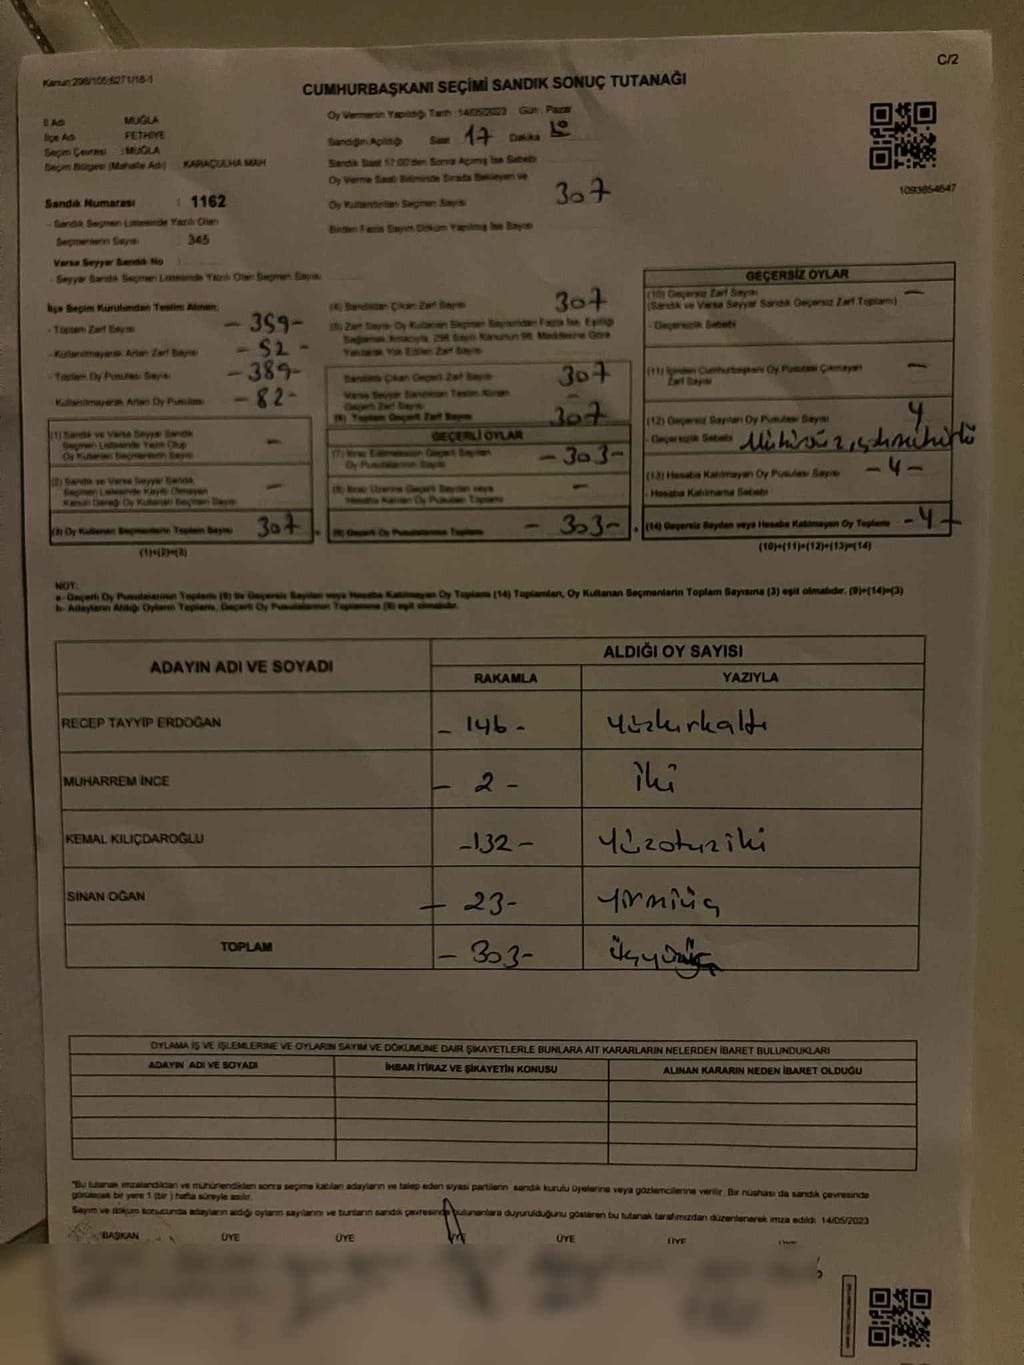 Kanun:298/105;6271/18-1
C/2
CUMHURBAŞKANI SEÇİMİ SANDIK SONUÇ TUTANAĞI
İl Adı MUĞLA
İlçe Adı FETHİYE
Seçim Çevresi :MUĞLA
Seçim Bölgesi (Mahalle Adı) KARAÇULHA MAH
Oy Vermenin Yapıldığı Tarih :14/05/2023 Gün : Pazar
Sandığın Açıldığı Saat 17 Dakika
Sandık Saat 17:00'den Sonra Açılmış İse Sebebi
Oy Verme Saati Bitiminde Sırada Bekleyen ve
Oy Kullandırılan Seçmen Sayısı 307
Birden Fazla Sayım Döküm Yapılmış İse Sayısı
1093854647
Sandık Numarası : 1162
- Sandık Seçmen Listesinde Yazılı Olan
Seçmenlerin Sayısı : 345
Varsa Seyyar Sandık No :
- Seyyar Sandık Seçmen Listesinde Yazılı Olan Seçmen Sayısı
İlçe Seçim Kurulundan Teslim Alınan;
- Toplam Zarf Sayısı - 359-
- Kullanılmayarak Artan Zarf Sayısı - 52 -
- Toplam Oy Pusulası Sayısı - 389-
- Kullanılmayarak Artan Oy Pusulası - 82-
(1) Sandık ve Varsa Seyyar Sandık
Seçmen Listesinde Yazılı Olup
Oy Kullanan Seçmenlerin Sayısı -
(2) Sandık ve Varsa Seyyar Sandık
Seçmen Listesinde Kayıtlı Olmayan
Kanun Gereği Oy Kullanan Seçmen Sayısı -
(3) Oy Kullanan Seçmenlerin Toplam Sayısı 307
(1)+(2)=(3)
(4) Sandıktan Çıkan Zarf Sayısı 307
(5) Zarf Sayısı Oy Kullanan Seçmen Sayısından Fazla İse, Eşitliği
Sağlamak Amacıyla, 298 Sayılı Kanunun 98. Maddesine Göre
Yakılarak Yok Edilen Zarf Sayısı
Sandıkta Çıkan Geçerli Zarf Sayısı 307
Varsa Seyyar Sandıktan Teslim Alınan
Geçerli Zarf Sayısı -
(6) Toplam Geçerli Zarf Sayısı 307
GEÇERLİ OYLAR
(7) İtiraz Edilmeksizin Geçerli Sayılan
Oy Pusulalarının Sayısı - 303-
(8) İtiraz Üzerine Geçerli Sayılan veya
Hesaba Katılan Oy Pusulaları Toplamı -
(9) Geçerli Oy Pusulalarının Toplamı - 303-
GEÇERSİZ OYLAR
(10) Geçersiz Zarf Sayısı -
(Sandık ve Varsa Seyyar Sandık Geçersiz Zarf Toplamı)
- Geçersizlik Sebebi
(11) İçinden Cumhurbaşkanı Oy Pusulası Çıkmayan
Zarf Sayısı -
(12) Geçersiz Sayılan Oy Pusulası Sayısı 4
- Geçersizlik Sebebi
(13) Hesaba Katılmayan Oy Pusulası Sayısı -4-
- Hesaba Katılmama Sebebi
(14) Geçersiz Sayılan veya Hesaba Katılmayan Oy Toplamı -4-
(10)+(11)+(12)+(13)=(14)
NOT:
a- Geçerli Oy Pusulalarının Toplamı (9) ile Geçersiz Sayılan veya Hesaba Katılmayan Oy Toplamı (14) Toplamları, Oy Kullanan Seçmenlerin Toplam Sayısına (3) eşit olmalıdır. (9)+(14)=(3)
b- Adayların Aldığı Oyların Toplamı, Geçerli Oy Pusulalarının Toplamına (9) eşit olmalıdır.
ADAYIN ADI VE SOYADI
ALDIĞI OY SAYISI
RAKAMLA YAZIYLA
RECEP TAYYİP ERDOĞAN - 146 - yüzkırkaltı
MUHARREM İNCE - 2 - iki
KEMAL KILIÇDAROĞLU -132- yüzotuziki
SİNAN OĞAN - 23- yirmiüç
TOPLAM - 303- üçyüzüç
OYLAMA İŞ VE İŞLEMLERİNE VE OYLARIN SAYIM VE DÖKÜMÜNE DAİR ŞİKAYETLERLE BUNLARA AİT KARARLARIN NELERDEN İBARET BULUNDUKLARI
ADAYIN ADI VE SOYADI İHBAR İTİRAZ VE ŞİKAYETİN KONUSU ALINAN KARARIN NEDEN İBARET OLDUĞU
*Bu tutanak imzalandıktan ve mühürlendikten sonra seçime katılan adayların ve talep eden siyasi partilerin sandık kurulu üyelerine veya gözlemcilerine verilir. Bir nüshası da sandık çevresinde
görülecek bir yere 1 (bir ) hafta süreyle asılır.
Sayım ve döküm sonucunda adayların aldığı oyların sayılarını ve bunların sandık çevresinde bulunanlara duyurulduğunu gösteren bu tutanak tarafımızdan düzenlenerek imza edildi. 14/05/2023
BAŞKAN ÜYE ÜYE ÜYE ÜYE ÜYE